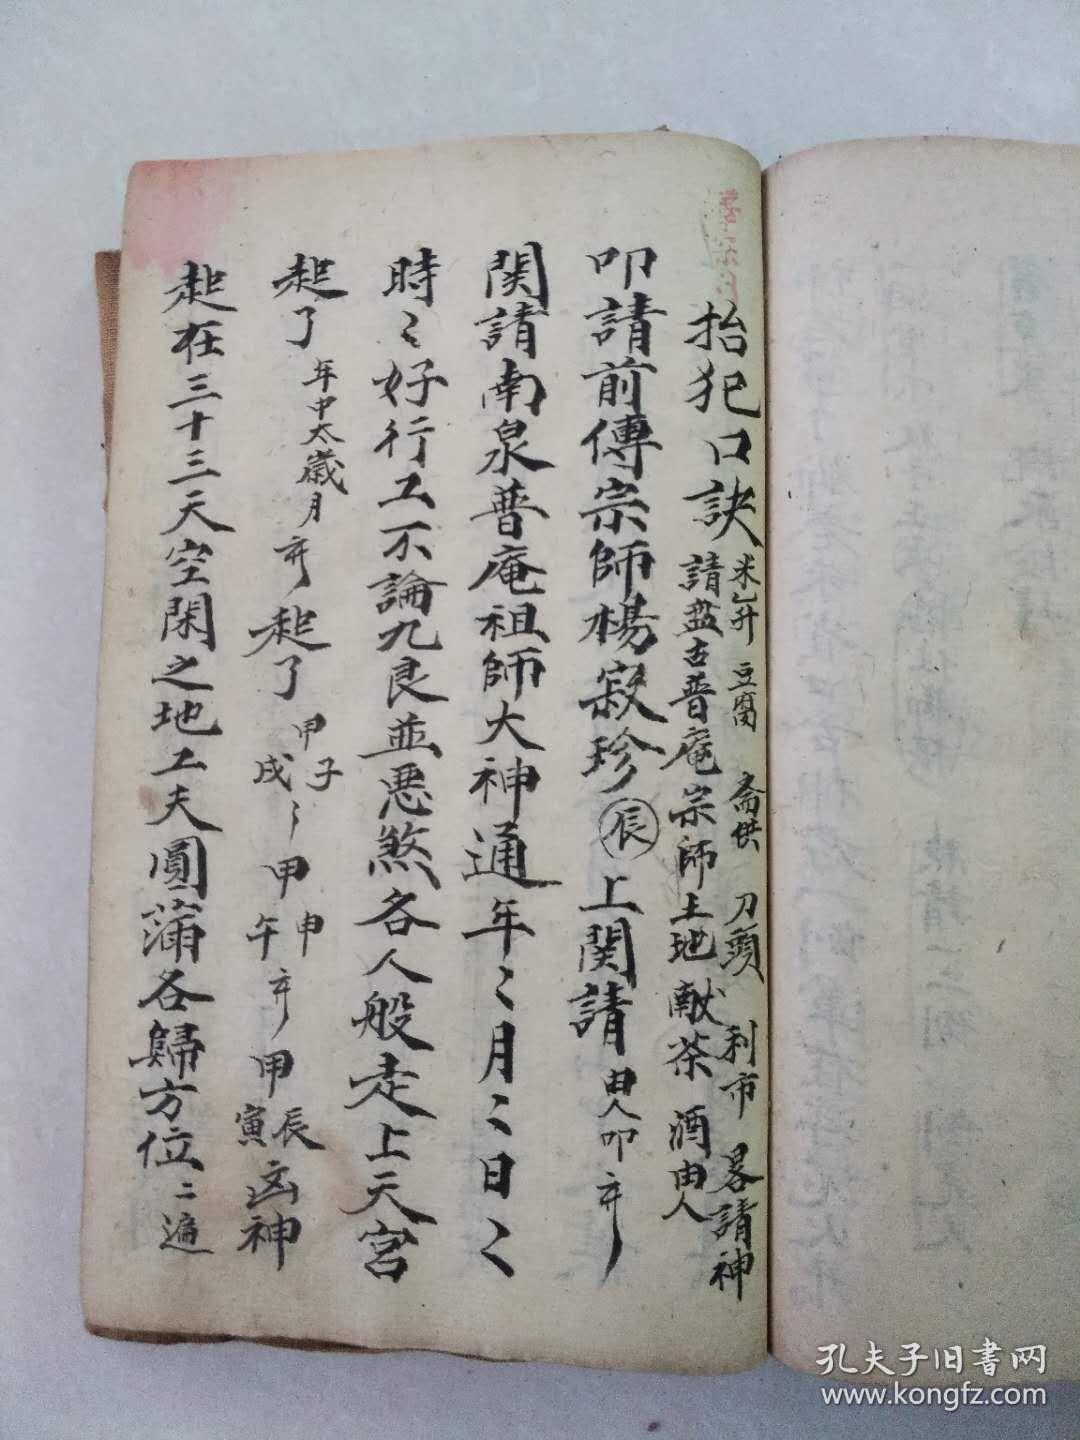 抬犯口訣
米一升 豆腐 斋供 刀頭 利市 畧請神
請盘古普庵宗師土地献茶 酒由人
叩請前傳宗師楊寂珍辰上関請 由人叩
関請南泉普庵祖師大神通年〻月〻日〻
時〻好行工不論九良並惡煞各人般走上天宮
起了年中太歲月 起了 甲子戌 甲申午 甲辰寅 凶神
起在三十三天空閑之地工夫圓蒲各歸方位 二遍
孔夫子旧書网
www.kongfz.com